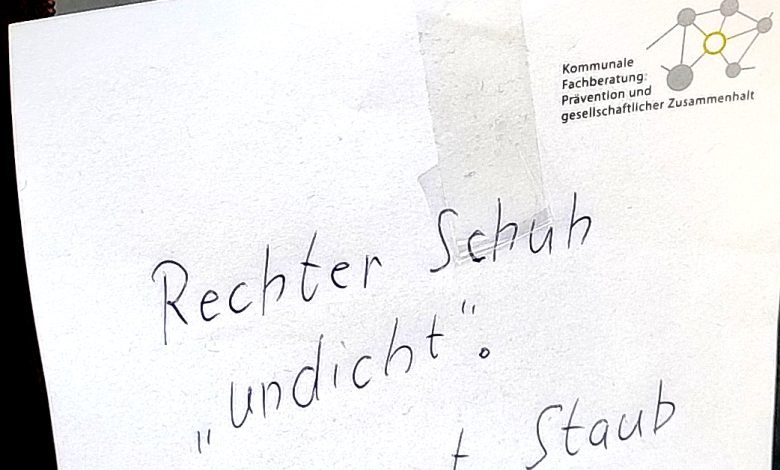 Kommunale
Fachberatung:
Prävention und
gesellschaftlicher Zusammenhalt
Rechter Schuh
„undicht“.
Staub